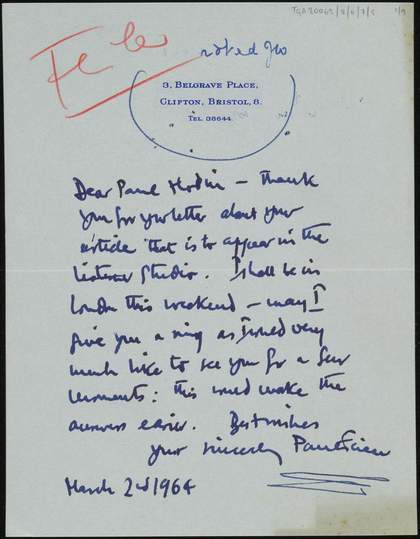 TGA 20062/
File
noted
3, BELGRAVE PLACE,
CLIFTON, BRISTOL, 8.
TEL. 38644
Dear Paul Hodin – Thank
you for your letter about your
article that is to appear in the
Studio. I shall be in
London this weekend – may I
give you a ring as I would very
much like to see you for a few
moments: this would make the
answers easier. Best wishes
Your sincerely Paul Feiler
March 2nd 1964